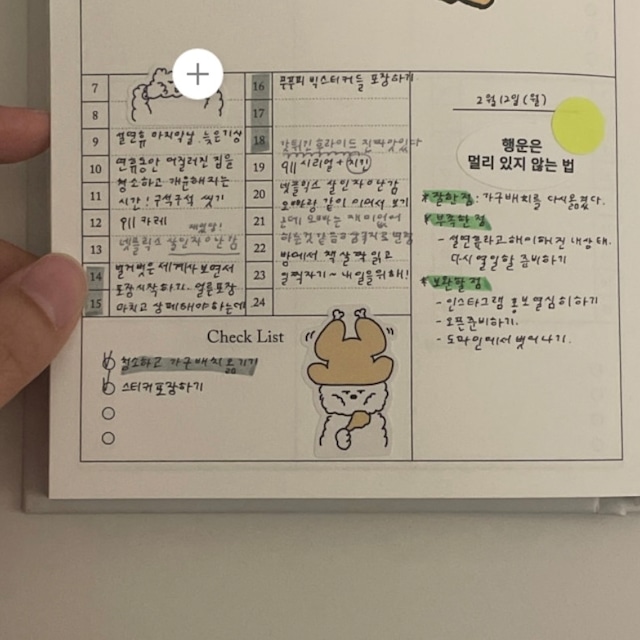 7
8
9 설연휴 마지막날. 늦은기상
10 연휴동안 어질러진 집을
청소하고 개운해지는
11 시간! 구석구석 씻기
12 911 카레
13 넷플릭스 살인자ㅇ난감
14 벌거벗은세계사보면서
포장시작하기. 얼른포장
15 마치고 상페해야하는데
16 쿠쿠피 빅스티커들 포장하기
17
18 갓튀긴후라이드 진짜맛있다
19 911 시리얼+딸기
20 넷플릭스 살인자ㅇ난감
오빠랑 같이 이어서 보기
21 근데 오빠는 재미없어
22
밤에서 책 살짝 읽고
23 일찍자기~ 내일을위해!
24
Check List
청소하고 가구배치 옮기기
스티커포장하기
2월12일(월)
행운은
멀리 있지 않는 법
* 잘한 점: 가구배치를 다시옮겼다.
부족한 점
- 설연휴라고해이해진 내상태.
다시 열일할 준비하기
* 보완할 점
- 인스타그램 홍보열심히하기
- 오픈준비하기.
- 도파민에서 벗어나기.